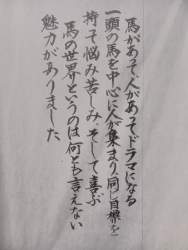 馬があって人があってドラマになる
一頭の馬を中心に人が集まり、同じ目標を
持って悩み苦しみ、そして喜ぶ
馬の世界というのは何とも言えない
魅力がありました